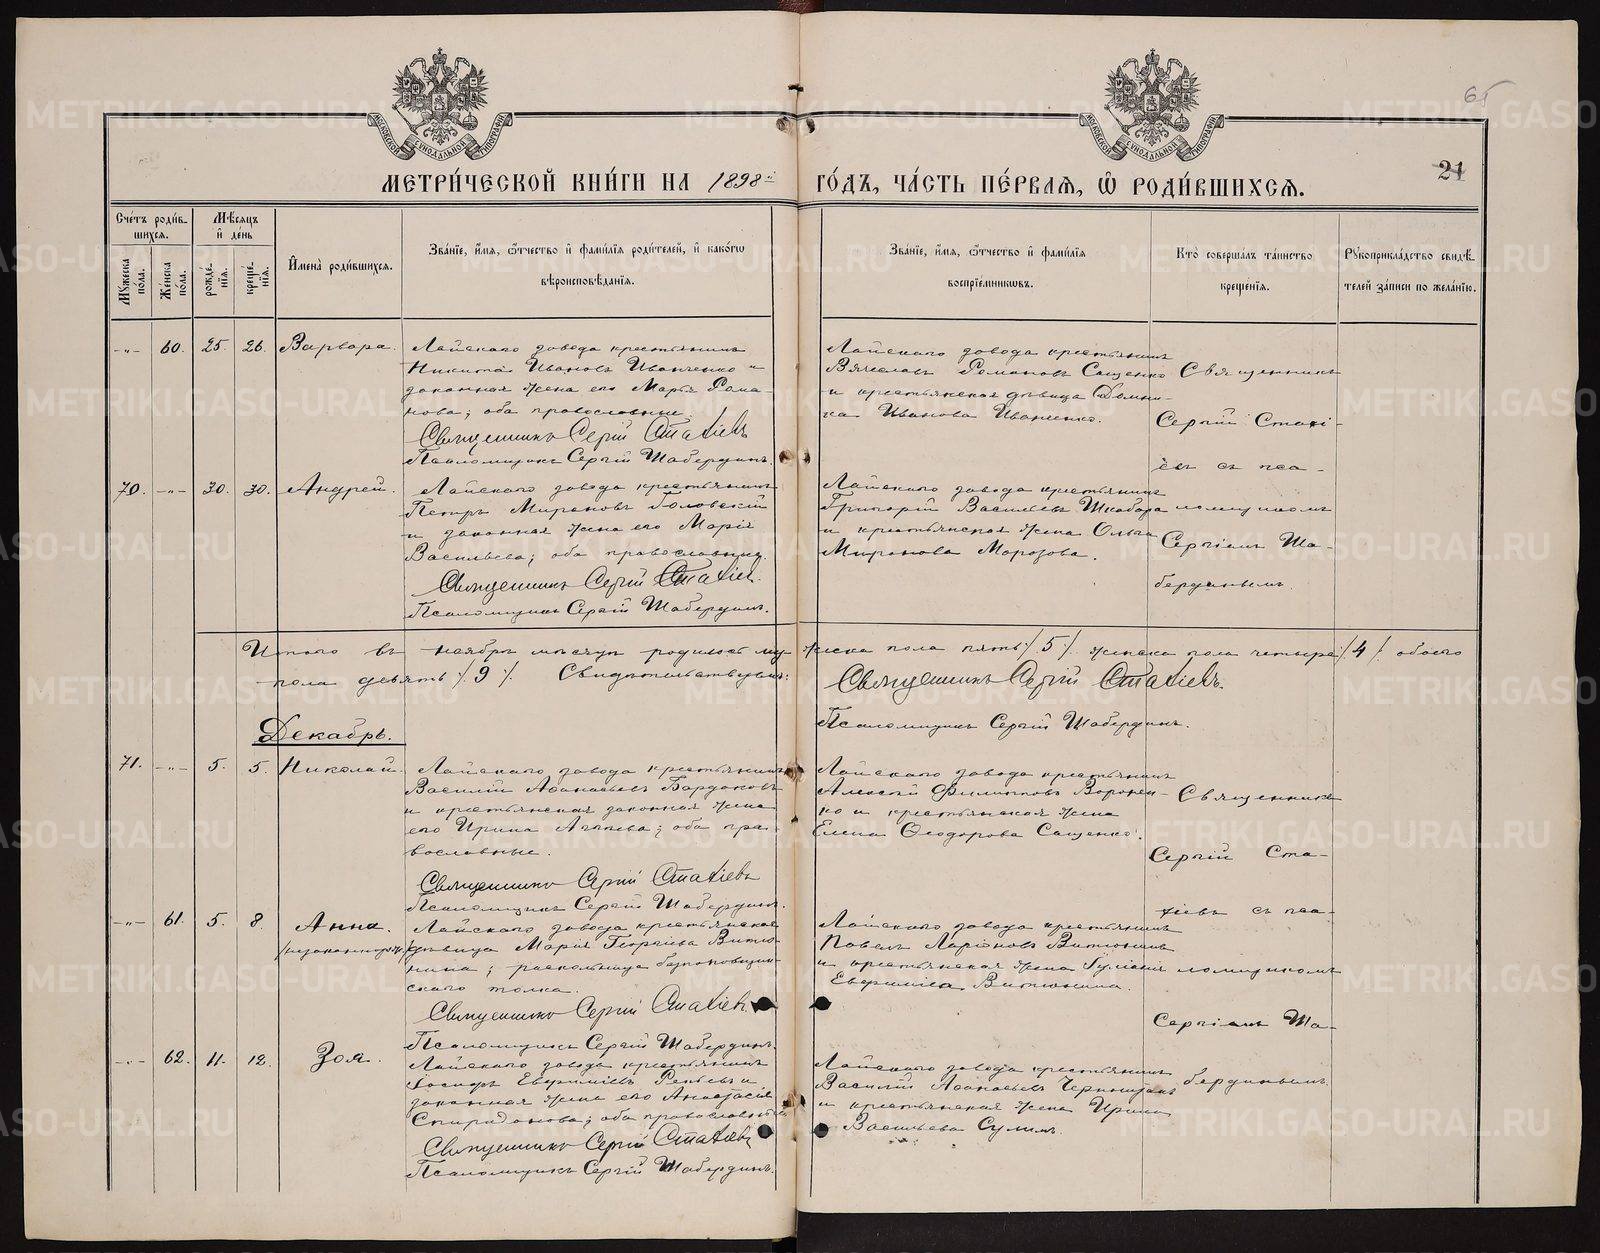 65
21
МЕТРИ́ЧЕСКОЙ КНИ́ГИ НА 1898й ГО́ДЪ, ЧА́СТЬ ПЕ́РВАЯ, Ѡ РОДИ́ВШИХСЯ.
Сче́тъ роди́вшихся.
Му́жеска по́ла.
Же́нска по́ла.
Мѣ́сяцъ и де́нь
рожде́нія.
креще́нія.
И҆мена̀ роди́вшихся.
Зва́нїе, и҆́мя, ѻ҆́тчество и҆ фами́лїя роди́телей, и҆ како́гѡ
вѣроисповѣ́данїя.
Зва́нїе, и҆́мя, ѻ҆́тчество и҆ фами́лїя
воспрїе́мникѡвъ.
Кто̀ соверша́лъ та́инство
креще́нїя.
Рꙋкоприкла́дство свидѣ́-
телей за́писи по жела́нїю.
-"- 60. 25. 26. Варвара.
Лайского завода крестьянинъ
Никита Ивановъ Иванченко и
законная жена его Марья Рома-
нова; оба православные.
Священникъ Сергій Стахіевъ
Псаломщикъ Сергій Шабердинъ.
Лайского завода крестьянинъ
Вячеславъ Романовъ Сащенко
и крестьянская дѣвица Домни-
ка Иванова Иваненко.
Священникъ
Сергій Стахі-
евъ съ пса-
ломщикомъ
Сергіемъ Ша-
бердинымъ.
70. -"- 30. 30. Андрей.
Лайского завода крестьянинъ
Петръ Мироновъ Головскій
и законная жена его Марія
Васильева; оба православные.
Священникъ Сергій Стахіев.
Псаломщикъ Сергій Шабердинъ.
Лайского завода крестьянинъ
Григорій Васильевъ Шкабара
и крестьянская жена Ольга
Миронова Морозова.
Итого въ ноябрѣ мѣсяцѣ родилось му
жеска пола пять /5/. женска пола четыре /4/. обоего
пола девять /9/. Свидѣтельствуемъ:
Священникъ Сергій Стахіевъ.
Псаломщикъ Сергій Шабердинъ.
Декабрь.
71. -"- 5. 5. Николай.
Лайского завода крестьянинъ
Василій Аѳанасьевъ Бардаковъ
и крестьянская законная жена
его Ирина Агѣева; оба пра-
вославные.
Священникъ Сергій Стахіевъ
Псаломщикъ Сергій Шабердинъ.
Лайского завода крестьянинъ
Алексѣй Филипповъ Воронен-
ко и крестьянская жена
Елена Ѳеодорова Сащенко.
Священникъ
Сергій Ста-
хіевъ съ пса-
ломщикомъ
Сергіемъ Ша-
бердинымъ.
-"- 61. 5. 8. Анна.
Лайского завода крестьянская
дѣвица Марія Георгіева Витю-
нина; раскольница безпоповщин-
скаго толка.
Священникъ Сергій Стахіевъ.
Псаломщикъ Сергій Шабердинъ.
Лайского завода крестьянинъ
Павелъ Ларіоновъ Витюнинъ
и крестьянская жена Іулианія
Евѳиміева Витюнина.
-"- 62. 11. 12. Зоя.
Лайского завода крестьянинъ
Іосифъ Евѳиміевъ и
законная жена его Анастасія
Спиридонова; оба православные
Священникъ Сергій Стахіевъ
Псаломщикъ Сергій Шабердинъ.
Лайского завода крестьянинъ
Василій Аѳанасьевъ
и крестьянская жена Ирина
Васильева Сулимъ.
METRIKI.GASO-URAL.RU